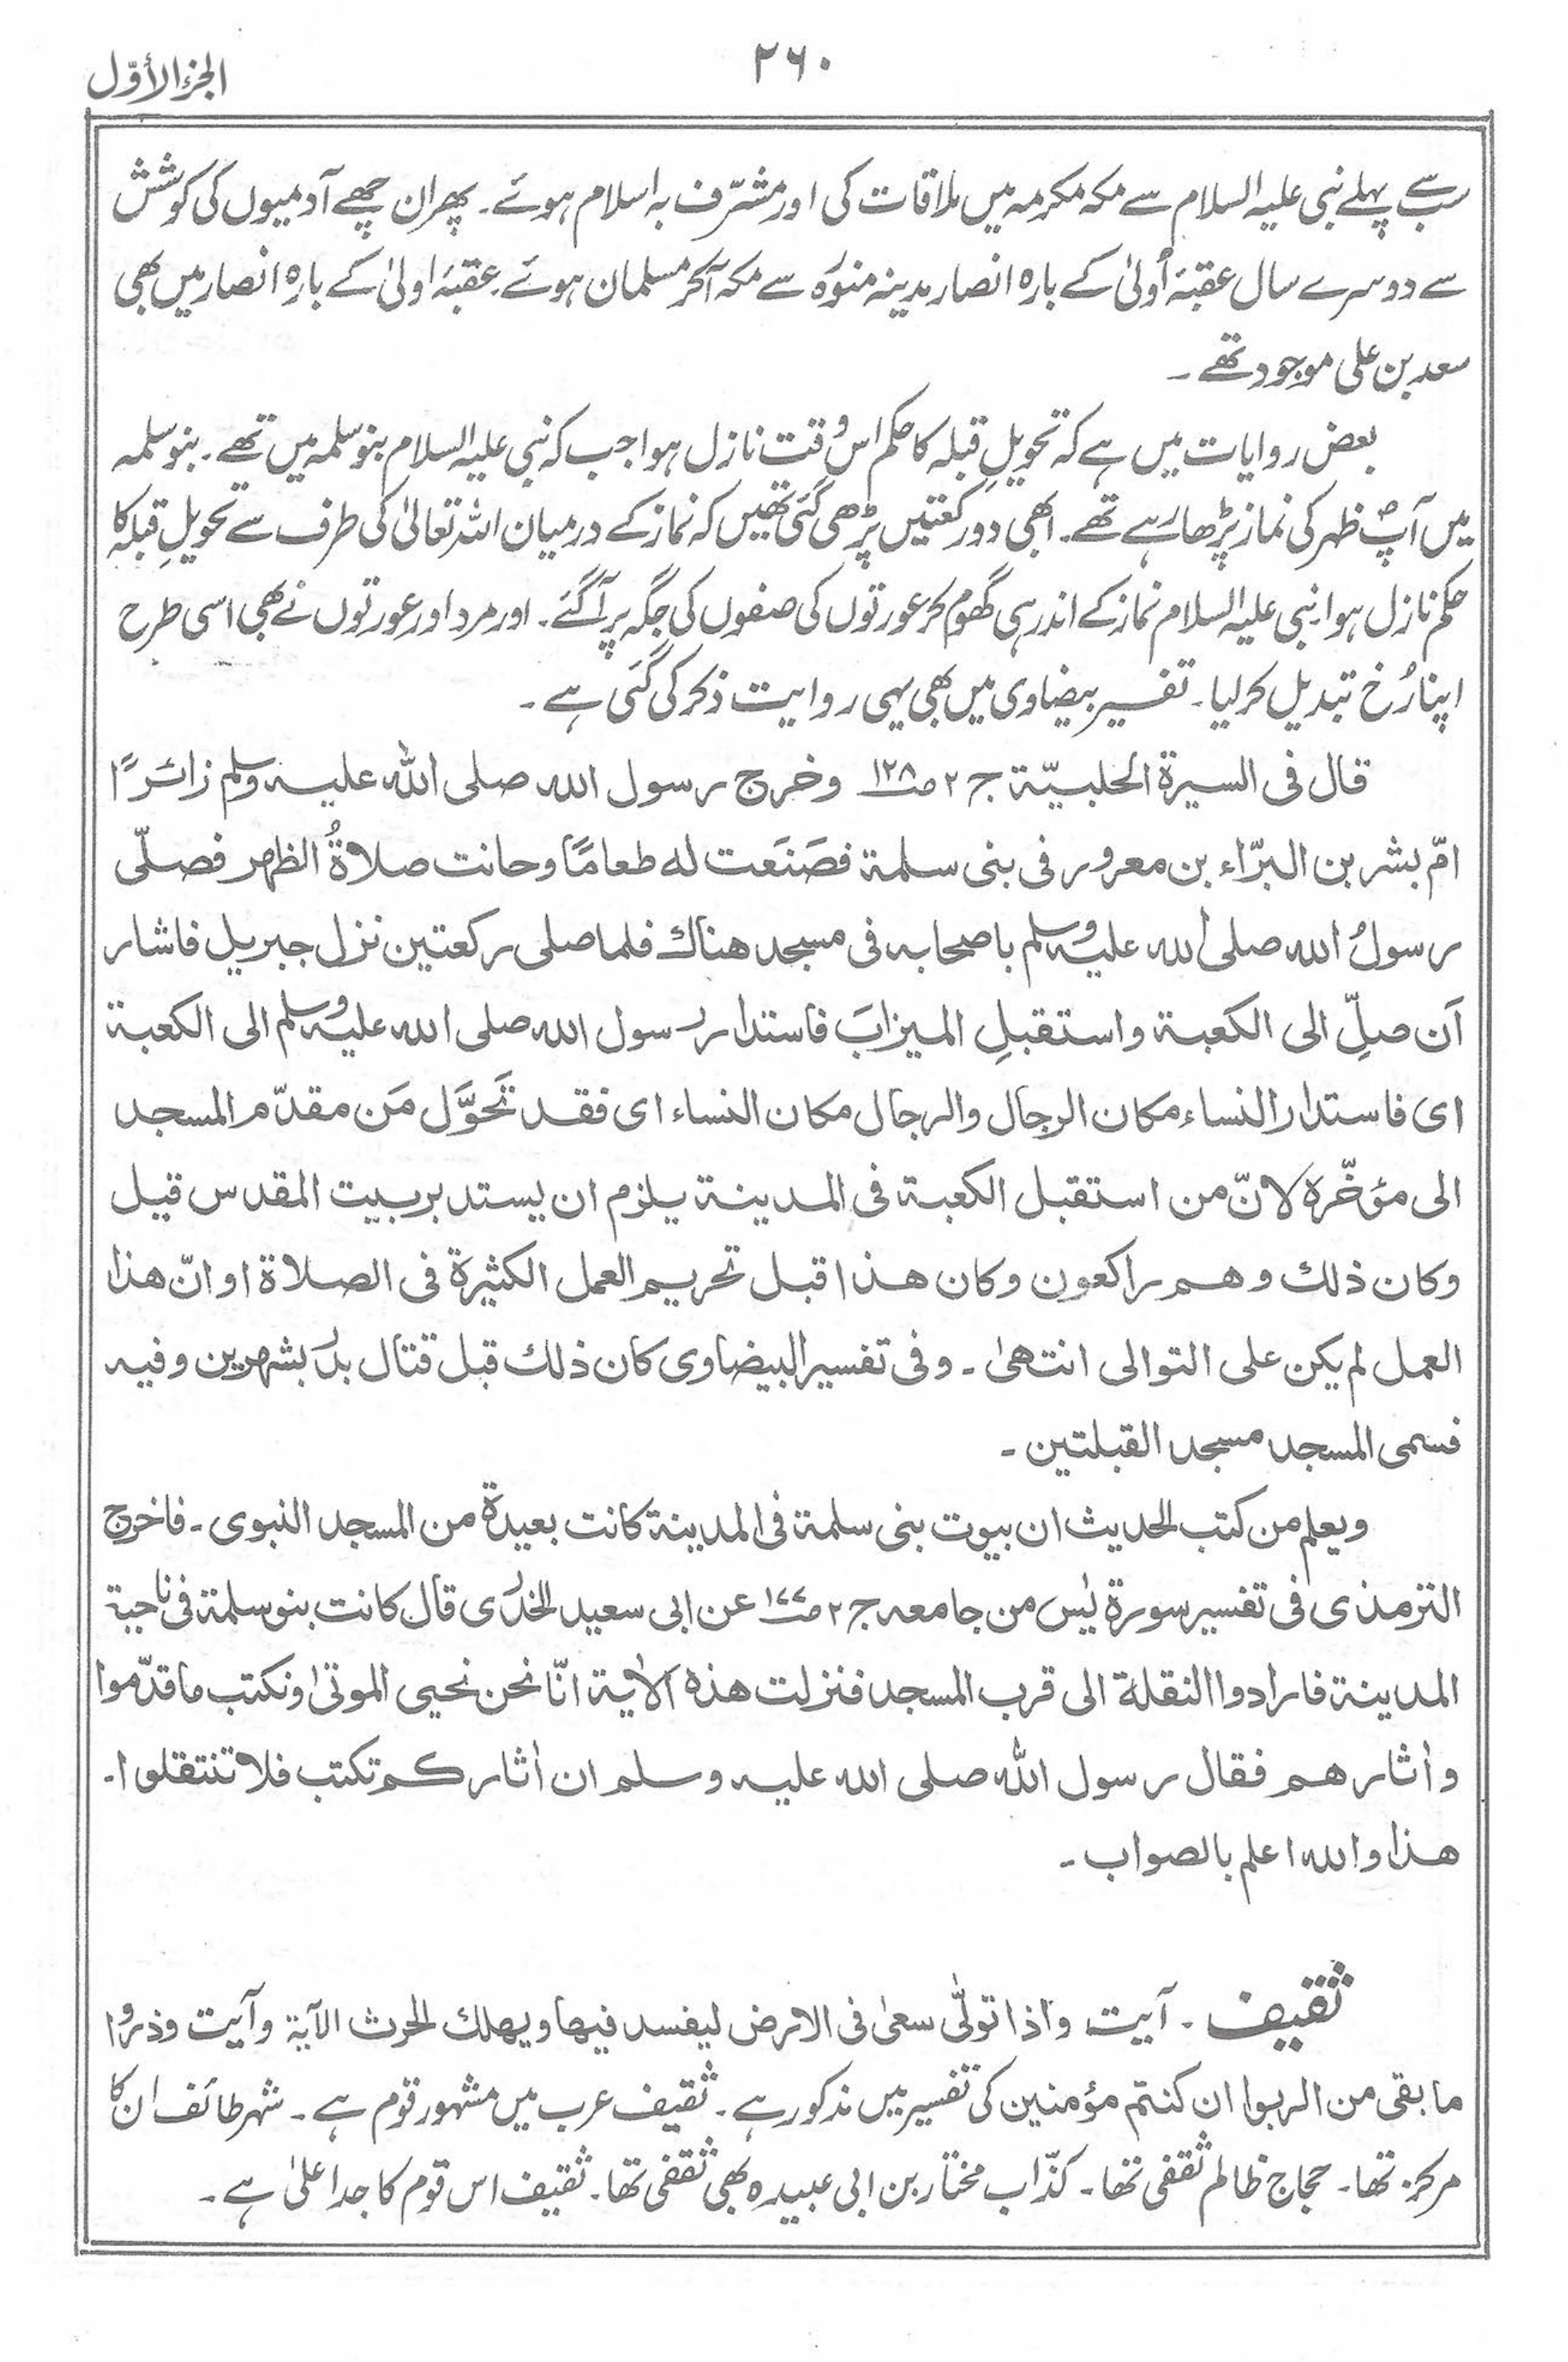 ۲۶۰
الجزء الأوّل
سب سے پہلے نبی علیہ السلام سے مکہ مکرمہ میں ملاقات کی اور مشرّف بہ اسلام ہوئے۔ پھر ان چھے آدمیوں کی کوشش
سے دوسرے سال عقبۂ اُولیٰ کے بارہ انصار مدینہ منوّرہ سے مکہ آکر مسلمان ہوئے۔ عقبۂ اولیٰ کے بارہ انصار میں بھی
سعد بن علی موجود تھے ۔
بعض روایات میں ہے کہ تحویلِ قبلہ کا حکم اس وقت نازل ہوا جب کہ نبی علیہ السلام بنو سلمہ میں تھے ۔ بنو سلمہ
میں آپؐ ظہر کی نماز پڑھا رہے تھے ۔ ابھی دو رکعتیں پڑھی گئی تھیں کہ نماز کے درمیان اللہ تعالیٰ کی طرف سے تحویلِ قبلہ کا
حکم نازل ہوا۔ نبی علیہ السلام نماز کے اندر ہی گھوم کر عورتوں کی صفوں کی جگہ پر آگئے ۔ اور مرد اور عورتوں نے بھی اسی طرح
اپنا رُخ تبدیل کر لیا ۔ تفسیر بیضاوی میں بھی یہی روایت ذکر کی گئی ہے ۔
قال فی السیرة الحلبیّة ج ۲ ص۱۲۸ وخرج رسول الله صلی الله علیه وسلم زائرًا
امّ بشر بن البرّاء بن معرور فی بنی سلمة فصَنَعت له طعامًا وحانت صلاةُ الظهر فصلّی
رسولُ الله صلی الله علیه وسلم باصحابه فی مسجد هناك فلما صلی رکعتین نزل جبریل فاشار
اَن صلِّ الی الکعبة واستقبلِ المیزابَ فاستدار رسول الله صلی الله علیه وسلم الی الکعبة
ای فاستدار النساء مکان الرجال والرجال مکان النساء ای فقد تَحوَّل مَن مقدّم المسجد
الی مؤخّرہ لانّ من استقبل الکعبة فی المدینة یلزم ان یستدبر بیت المقدس قیل
وکان ذلك وهم راکعون وکان هذا قبل تحریم العمل الکثیرة فی الصلاة او انّ هذا
العمل لم یکن علی التوالی انتهیٰ ۔ وفی تفسیر البیضاوی کان ذلك قبل قتال بدر بشهرین وفیه
فسمی المسجد مسجد القبلتین ۔
ویعلم من کتب الحدیث ان بیوت بنی سلمة فی المدینة کانت بعیدة من المسجد النبوی ۔ فاخرج
الترمذی فی تفسیر سورة یٰس من جامعه ج ۲ ص۱۷۷ عن ابی سعید الخدری قال کانت بنو سلمة فی ناحیة
المدینة فارادوا النقلة الی قرب المسجد فنزلت هذه الاٰیة انّا نحن نحیی الموتٰی ونکتب ما قدّموا
واٰثارهم فقال رسول الله صلی الله علیه وسلم ان اٰثارکم تکتب فلا تنتقلوا۔
هذا والله اعلم بالصواب ۔
ثقیف ۔ آیت واذا تولّٰی سعیٰ فی الارض لیفسد فیها ویهلك الحرث الآیة وآیت وذروا
ما بقی من الربوا ان کنتم مؤمنین کی تفسیر میں مذکور ہے ۔ ثقیف عرب میں مشہور قوم ہے ۔ شہر طائف ان کا
مرکز تھا ۔ حجاج ظالم ثقفی تھا ۔ کذّاب مختار بن ابی عبیدہ بھی ثقفی تھا ۔ ثقیف اس قوم کا جد اعلیٰ ہے ۔